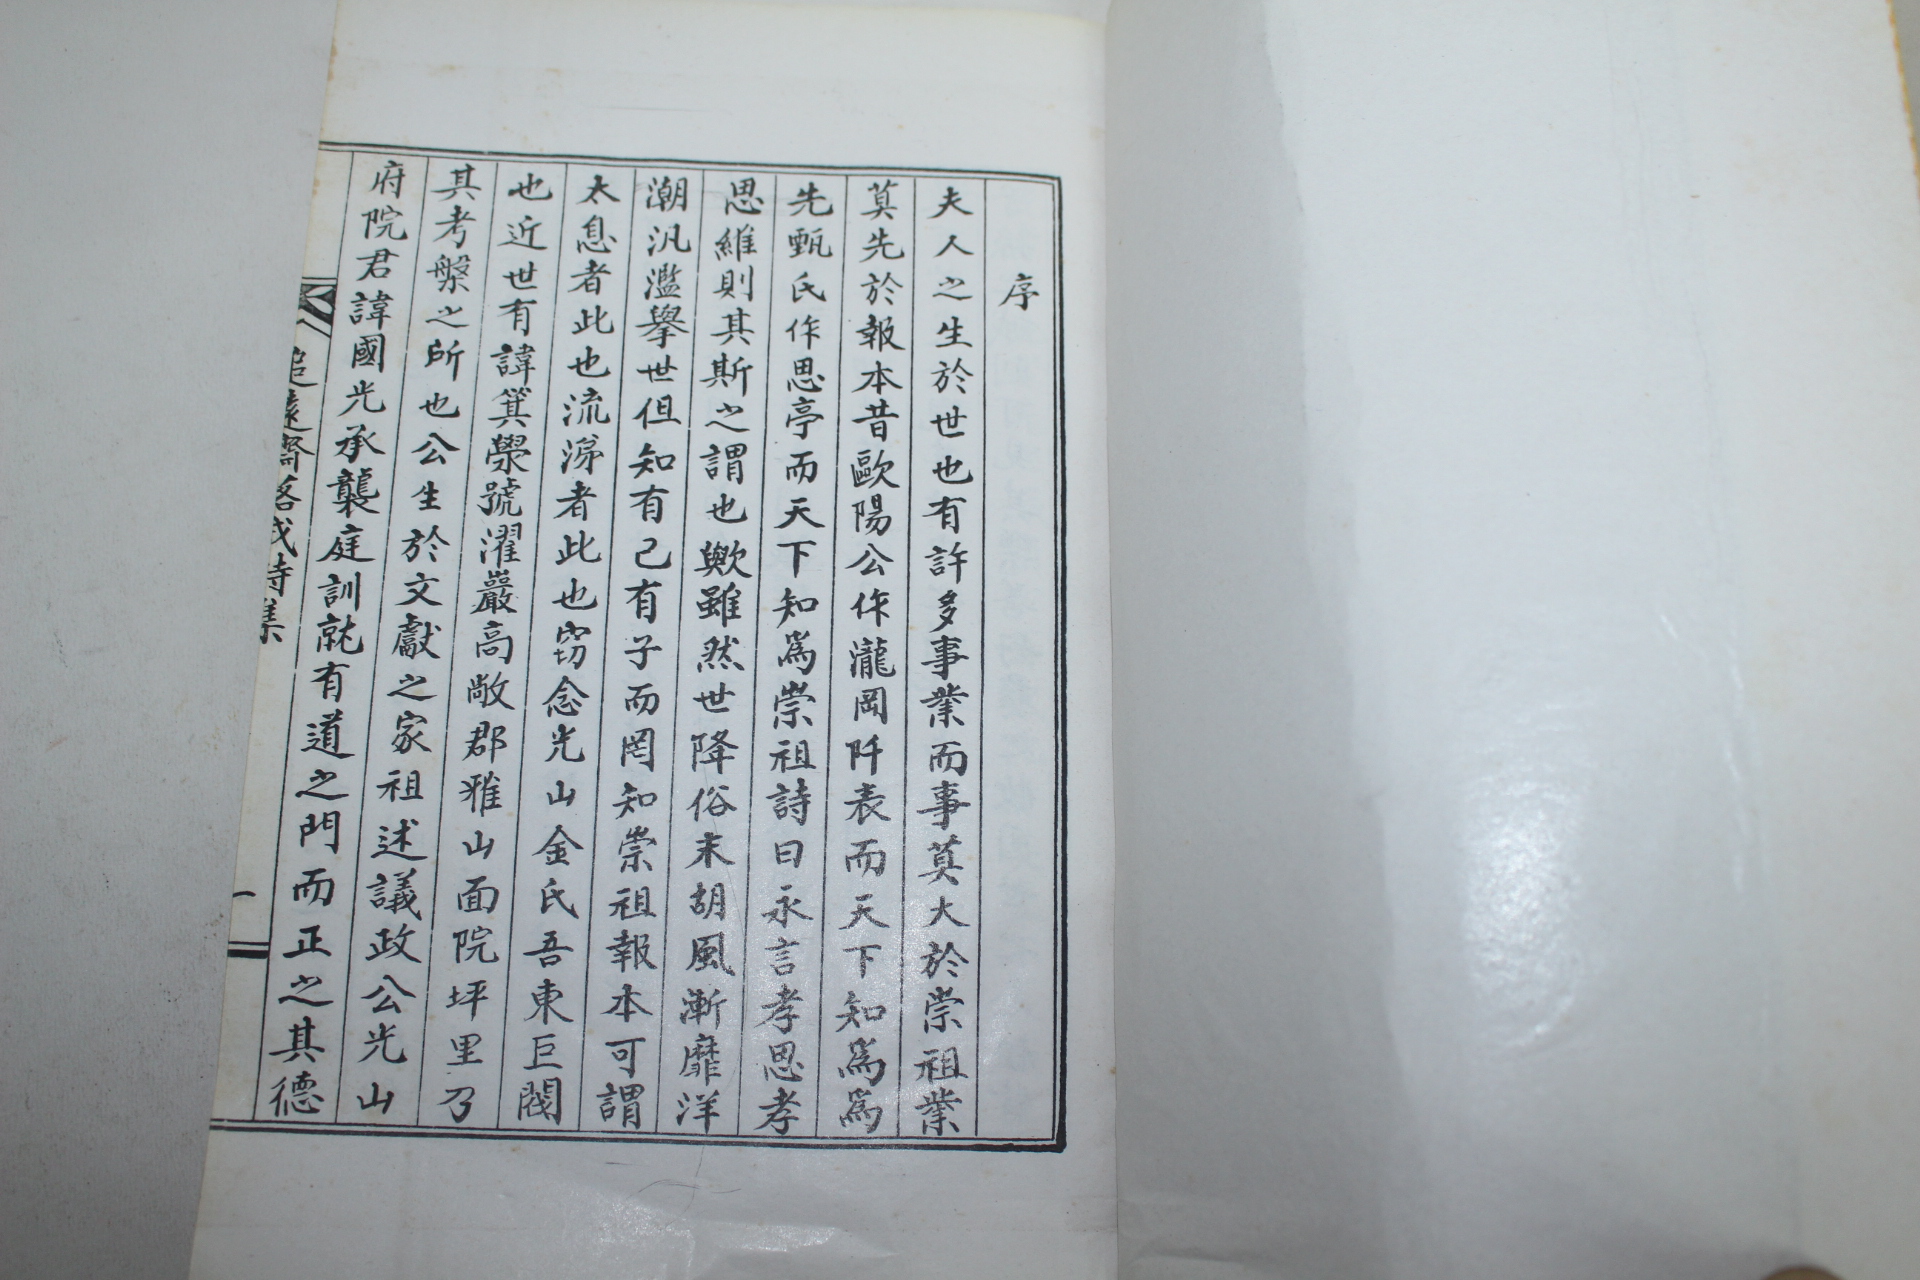 序
夫人之生於世也有許多事業而事莫大於崇祖業
莫先於報本昔歐陽公作瀧岡阡表而天下知爲爲
先甄氏作思亭而天下知爲崇祖詩曰永言孝思孝
思維則其斯之謂也歟雖然世降俗末胡風漸靡洋
潮汎濫擧世但知有己有子而罔知崇祖報本可謂
太息者此也流涕者此也窃念光山金氏吾東巨閥
也近世有諱箕學號濯巖高敞郡雅山面院坪里乃
其考槃之所也公生於文獻之家祖述議政公光山
府院君諱國光承襲庭訓就有道之門而正之其德
追遠齋落成詩集
一